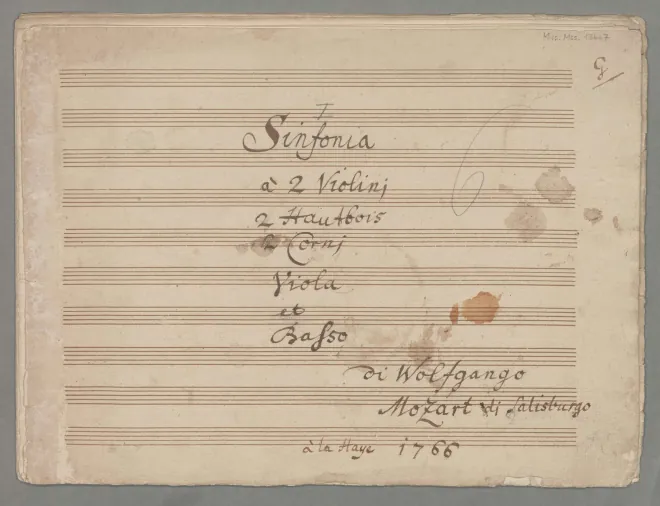 Mus. Mss. 12647
G
I
Sinfonia
à 2 Violinj
2 Hautbois
2 Cornj
Viola
et
Basso
di Wolfgango
Mozart di Salisburgo
à la Haye 1766